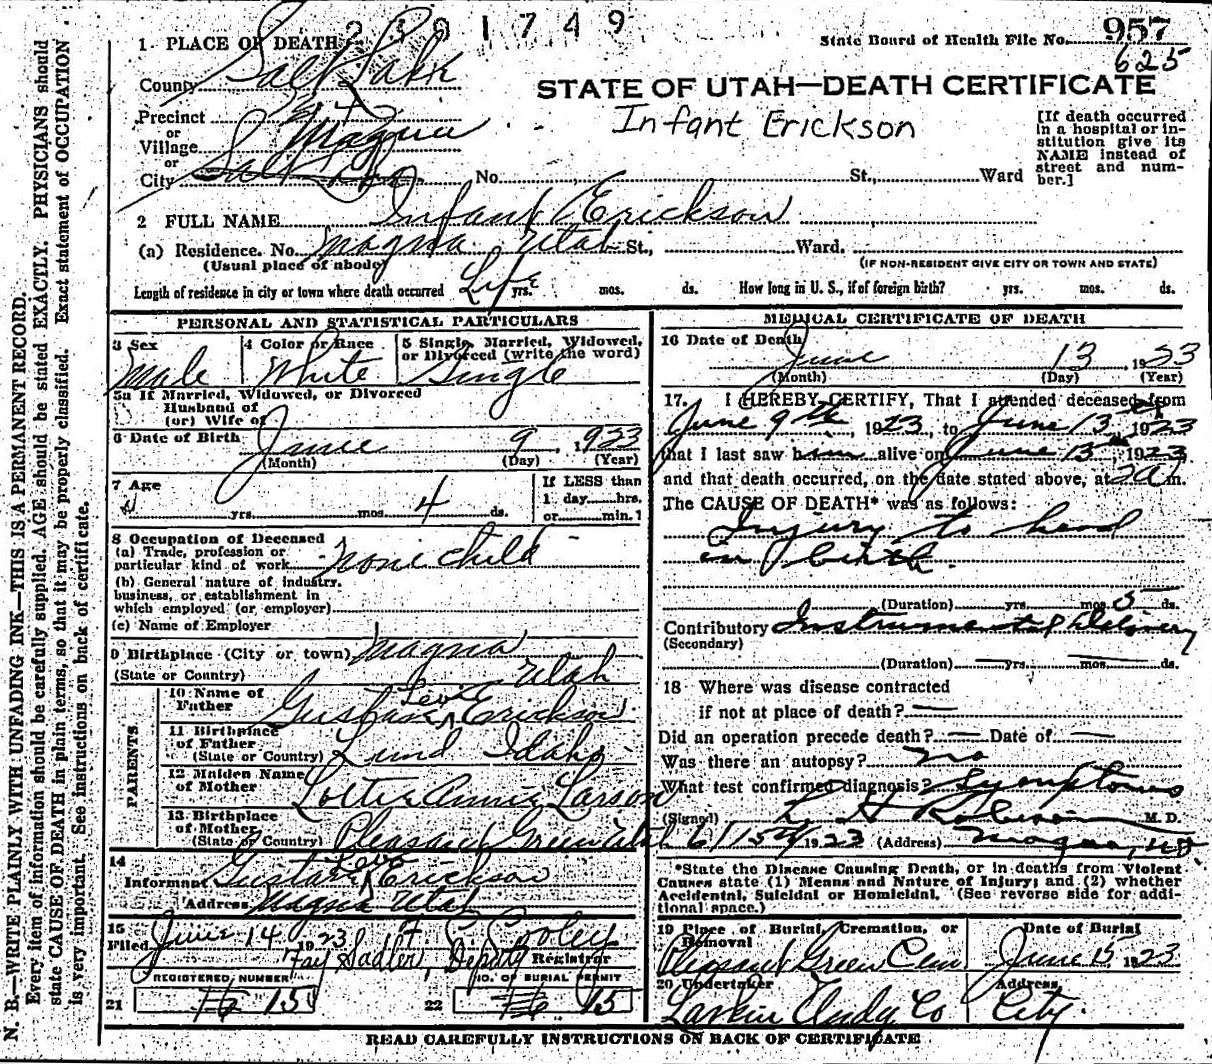 2301749
State Board of Health File No. 957
625
1 PLACE OF DEATH
County Salt Lake
STATE OF UTAH—DEATH CERTIFICATE
Infant Erickson
Precinct
or
Village Magna
or
City Salt Lake No. St., Ward
[If death occurred
in a hospital or in-
stitution give its
NAME instead of
street and num-
ber.]
2 FULL NAME Infant Erickson
(a) Residence. No. Magna Utah St., Ward.
(Usual place of abode) (IF NON-RESIDENT GIVE CITY OR TOWN AND STATE)
Length of residence in city or town where death occurred Life yrs. mos. ds. How long in U. S., if of foreign birth? yrs. mos. ds.
PERSONAL AND STATISTICAL PARTICULARS
3 Sex 4 Color or Race 5 Single, Married, Widowed,
or Divorced (write the word)
Male White Single
5a If Married, Widowed, or Divorced
Husband of
(or) Wife of
6 Date of Birth June 9, 1923
(Month) (Day) (Year)
7 Age If LESS than
1 day hrs.
yrs. mos. 4 ds. or min.?
8 Occupation of Deceased
(a) Trade, profession or
particular kind of work none child
(b) General nature of industry,
business, or establishment in
which employed (or employer)
(c) Name of Employer
9 Birthplace (City or town) Magna
(State or Country) Utah
PARENTS
10 Name of
Father Gustave Levi Erickson
11 Birthplace
of Father
(State or Country) Lund Idaho
12 Maiden Name
of Mother Lottie Annie Larson
13 Birthplace
of Mother
(State or Country) Pleasant Green Utah
14
Informant Gustave Levi Erickson
Address Magna Utah
15
Filed June 14 1923 F. C. Cooley
Fay Sadler, Deputy Registrar
REGISTERED NUMBER NO. OF BURIAL PERMIT
21 16 15 22 16 15
MEDICAL CERTIFICATE OF DEATH
16 Date of Death
June 13, 1923
(Month) (Day) (Year)
17. I HEREBY CERTIFY, That I attended deceased from
June 9th, 1923, to June 13th, 1923
that I last saw him alive on June 13th 1923
and that death occurred, on the date stated above, at 2 a m.
The CAUSE OF DEATH* was as follows:
Injury to head
in birth.
(Duration) yrs. mos. 5 ds.
Contributory Instrumental Delivery
(Secondary)
(Duration) yrs. mos. ds.
18 Where was disease contracted
if not at place of death?
Did an operation precede death? Date of
Was there an autopsy? no
What test confirmed diagnosis? Symptoms
(Signed) L. H. Robinson M. D.
6/15th, 1923 (Address) Magna, Ut.
*State the Disease Causing Death, or in deaths from Violent
Causes state (1) Means and Nature of Injury; and (2) whether
Accidental, Suicidal or Homicidal. (See reverse side for addi-
tional space.)
19 Place of Burial, Cremation, or Date of Burial
Removal
Pleasant Green Cem June 15 1923
20 Undertaker Address
Larkin Undg Co City.
READ CAREFULLY INSTRUCTIONS ON BACK OF CERTIFICATE
N. B.—WRITE PLAINLY WITH UNFADING INK—THIS IS A PERMANENT RECORD.
Every item of information should be carefully supplied. AGE should be stated EXACTLY. PHYSICIANS should
state CAUSE OF DEATH in plain terms, so that it may be properly classified. Exact statement of OCCUPATION
is very important. See instructions on back of certificate.